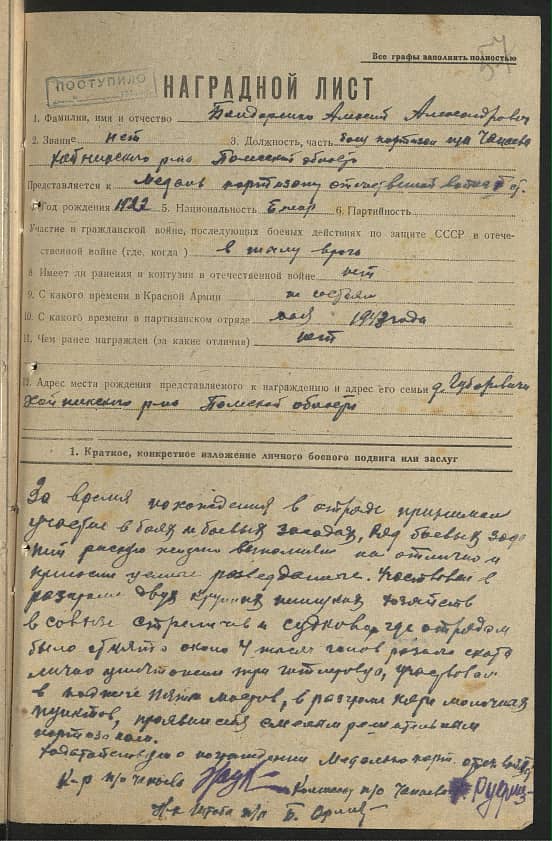 57
Все графы заполнять полностью
ПОСТУПИЛО
НАГРАДНОЙ ЛИСТ
1. Фамилия, имя и отчество Бондаренко Александрович
2. Звание нет 3. Должность, часть боец партизан п/о Чапаева
Хойникского р-на Полесской области
Представляется к Медаль партизану отечественной войны ст.
Год рождения 1922 5. Национальность Белар 6. Партийность
Участие в гражданской войне, последующих боевых действиях по защите СССР и отече-
ственной войне (где, когда) в тылу врага
8 Имеет ли ранения и контузии в отечественной войне нет
9. С какого времени в Красной Армии не состоял
10. С какого времени в партизанском отряде мая 1943 года
11. Чем ранее награжден (за какие отличия) нет
Адрес места рождения представляемого к награждению и адрес его семьи д. Губоревичи
Хойникского р-на Полесской области
1. Краткое, конкретное изложение личного боевого подвига или заслуг
За время нахождения в отряде принимал
участие в боях и боевых засадах, Ряд боевых зада
ний рискуя жизнью выполнял на отлично и
приносил ценные разведданные. Участвовал в
разгроме двух крупных немецких хозяйств
в совхозе Стреличев и Судково, где отрядом
было отнято около 4 тысяч голов рогатого скота
лично уничтожил три гитлеровца, участвовал
в поджоге пяти мостов, в разгроме молочных
пунктов, проявил себя смелым решительным
партизаном.
Ходатайствую о награждении Медалью парт. отеч. войны
К-р п/о Чапаева Комиссар п/о Чапаева
Н-к штаба п/о